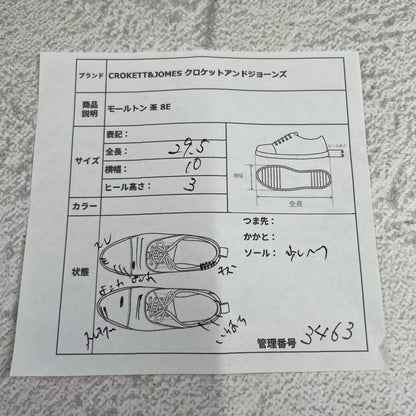 ブランド CROKETT&JOMES クロケットアンドジョーンズ
商品説明 モールトン 茶 8E
サイズ
表記：
全長： 29.5
横幅： 10
ヒール高さ： 3
横幅
全長
カラー
状態
つま先：
かかと：
ソール： 少し
キズ
管理番号 3463